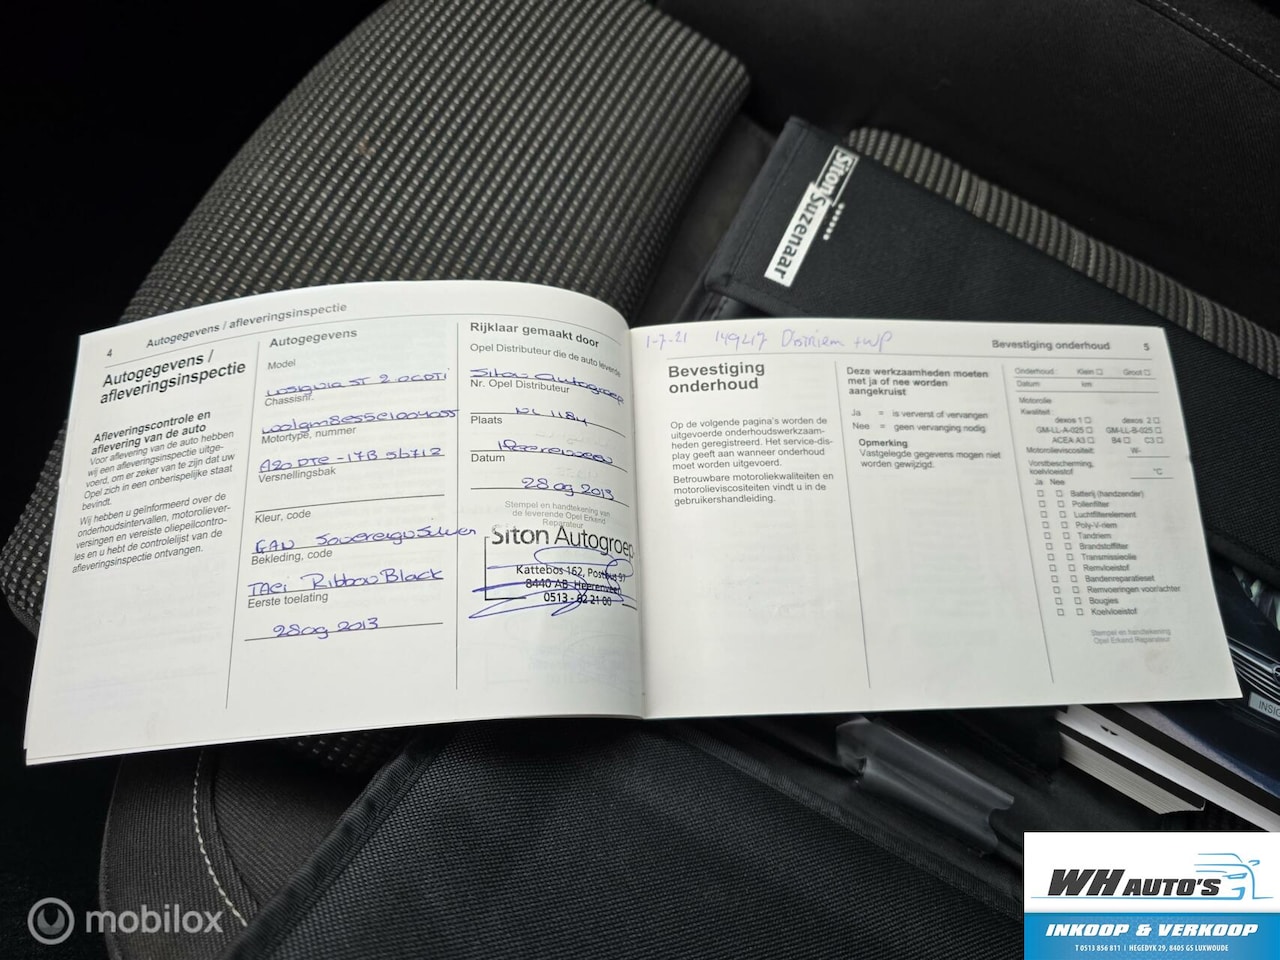 4
Autogegevens / afleveringsinspectie
Autogegevens /
afleveringsinspectie
Afleveringscontrole en
aflevering van de auto
Voor aflevering van de auto hebben
wij een afleveringsinspectie uitge-
voerd, om er zeker van te zijn dat uw
Opel zich in een onberispelijke staat
bevindt.
Wij hebben u geïnformeerd over de
onderhoudsintervallen, motoroliever-
versingen en vereiste oliepeilcontro-
les en u hebt de controlelijst van de
afleveringsinspectie ontvangen.
Autogegevens
Model
Insignia ST 2.0CDTI
Chassisnr.
Motortype, nummer
A20DTE-17B56712
Versnellingsbak
Kleur, code
GAN Sovereign Silver
Bekleding, code
TAEI Ribbon Black
Eerste toelating
28 09 2013
Rijklaar gemaakt door
Opel Distributeur die de auto leverde
Siton Autogroep
Nr. Opel Distributeur
NL 1184
Plaats
Heerenveen
Datum
28 09 2013
Stempel en handtekening van
de leverende Opel Erkend
Reparateur
Siton Autogroep
Kattebos 162, Postbus 97
8440 AB Heerenveen
0513 - 62 21 00
1-7-21 149217 Distriem + WP
Bevestiging onderhoud
5
Bevestiging
onderhoud
Op de volgende pagina's worden de
uitgevoerde onderhoudswerkzaam-
heden geregistreerd. Het service-dis-
play geeft aan wanneer onderhoud
moet worden uitgevoerd.
Betrouwbare motoroliekwaliteiten en
motorolieviscositeiten vindt u in de
gebruikershandleiding.
Deze werkzaamheden moeten
met ja of nee worden
aangekruist
Ja = is ververst of vervangen
Nee = geen vervanging nodig
Opmerking
Vastgelegde gegevens mogen niet
worden gewijzigd.
Onderhoud: Klein ☐ Groot ☐
Datum km
Motorolie
Kwaliteit:
dexos 1 ☐ dexos 2 ☐
GM-LL-A-025 ☐ GM-LL-B-025 ☐
ACEA A3 ☐ B4 ☐ C3 ☐
Motorolieviscositeit: W-
Vorstbescherming,
koelvloeistof °C
Ja Nee
☐ ☐ Batterij (handzender)
☐ ☐ Pollenfilter
☐ ☐ Luchtfilterelement
☐ ☐ Poly-V-riem
☐ ☐ Tandriem
☐ ☐ Brandstoffilter
☐ ☐ Transmissieolie
☐ ☐ Remvloeistof
☐ ☐ Bandenreparatieset
☐ ☐ Remvoeringen voor/achter
☐ ☐ Bougies
☐ ☐ Koelvloeistof
Stempel en handtekening
Opel Erkend Reparateur
Siton Suzenaar
INSIG
mobilox
WH AUTO'S
INKOOP & VERKOOP
T 0513 856 811 | HEGEDYK 29, 8405 GS LUXWOUDE